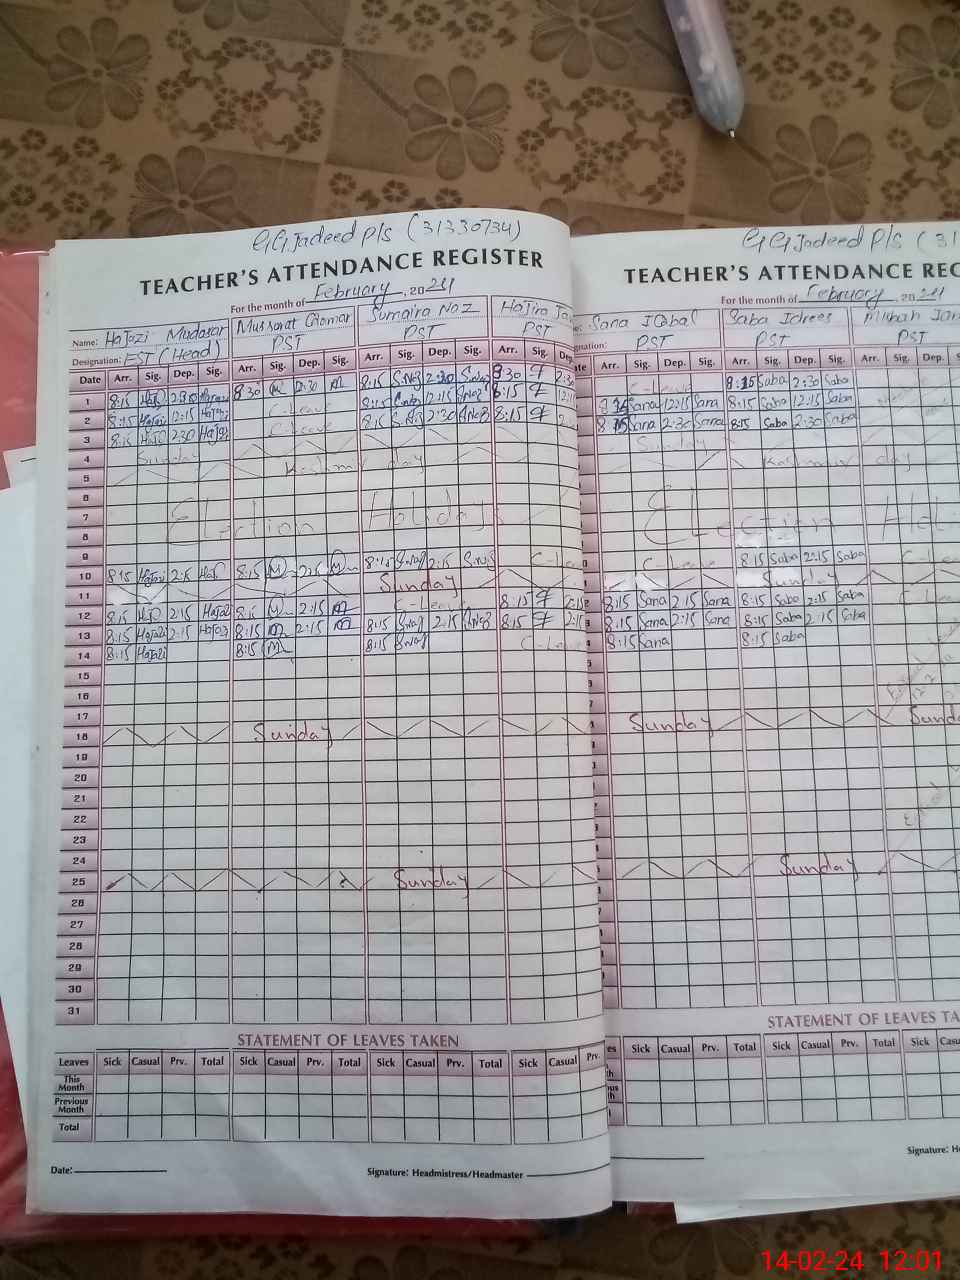 GG Jadeed P/S (31330734)
TEACHER'S ATTENDANCE REGISTER
For the month of February, 2024
Name: Hajazi Mudasar Mussarat Qamar Sumaira Naz Hajira
Designation: EST (Head) PST PST PST
Date Arr. Sig. Dep. Sig. Arr. Sig. Dep. Sig. Arr. Sig. Dep. Sig. Arr. Sig. Dep.
1 8:15 2:30 8:30 2:30 8:15 S.Naz 2:30 S.Naz 8:30 2:30
2 8:15 Hajazi 12:15 Hajazi C-Leave 8:15 S.Naz 12:15 S.Naz 8:15 12:15
3 8:15 2:30 Hajazi C-Leave 8:15 S.Naz 2:30 S.Naz 8:15
4 Sunday
5 Kashmir day
6
7 Election Holidays
8
9
10 8:15 Hajazi 2:15 Haj 8:15 M 2:15 M 8:15 S.naz 2:15 S.naz C-Lea
11 Sunday
12 8:15 2:15 Hajazi 8:15 M 2:15 M C-Leave 8:15 2:15
13 8:15 Hajazi 2:15 Hajazi 8:15 M 2:15 M 8:15 S.naz 2:15 S.naz 8:15 2:15
14 8:15 Hajazi 8:15 M 8:15 S.naz C-Leave
15
16
17
18 Sunday
19
20
21
22
23
24
25 Sunday
26
27
28
29
30
31
STATEMENT OF LEAVES TAKEN
Leaves Sick Casual Prv. Total Sick Casual Prv. Total Sick Casual Prv. Total Sick Casual Prv.
This Month
Previous Month
Total
Date: Signature: Headmistress/Headmaster
GG Jadeed P/S (31
TEACHER'S ATTENDANCE REG
For the month of February, 2024
Sana Iqbal Saba Idrees Misbah
gnation: PST PST PST
ate Arr. Sig. Dep. Sig. Arr. Sig. Dep. Sig. Arr. Sig. Dep.
C-Leave 8:15 Saba 2:30 Saba
8:15 Sana 12:15 Sana 8:15 Saba 12:15 Saba
8:15 Sana 2:30 Sana 8:15 Saba 2:30 Saba
Sunday
Kashmir day
Election Hol
C-Leave 8:15 Saba 2:15 Saba C-Lea
Sunday
8:15 Sana 2:15 Sana 8:15 Saba 2:15 Saba C-Lea
8:15 Sana 2:15 Sana 8:15 Saba 2:15 Saba
8:15 Sana 8:15 Saba
Sunday Sund
Sunday
STATEMENT OF LEAVES TA
es Sick Casual Prv. Total Sick Casual Prv. Total Sick Casu
Signature: He
14-02-24 12:01